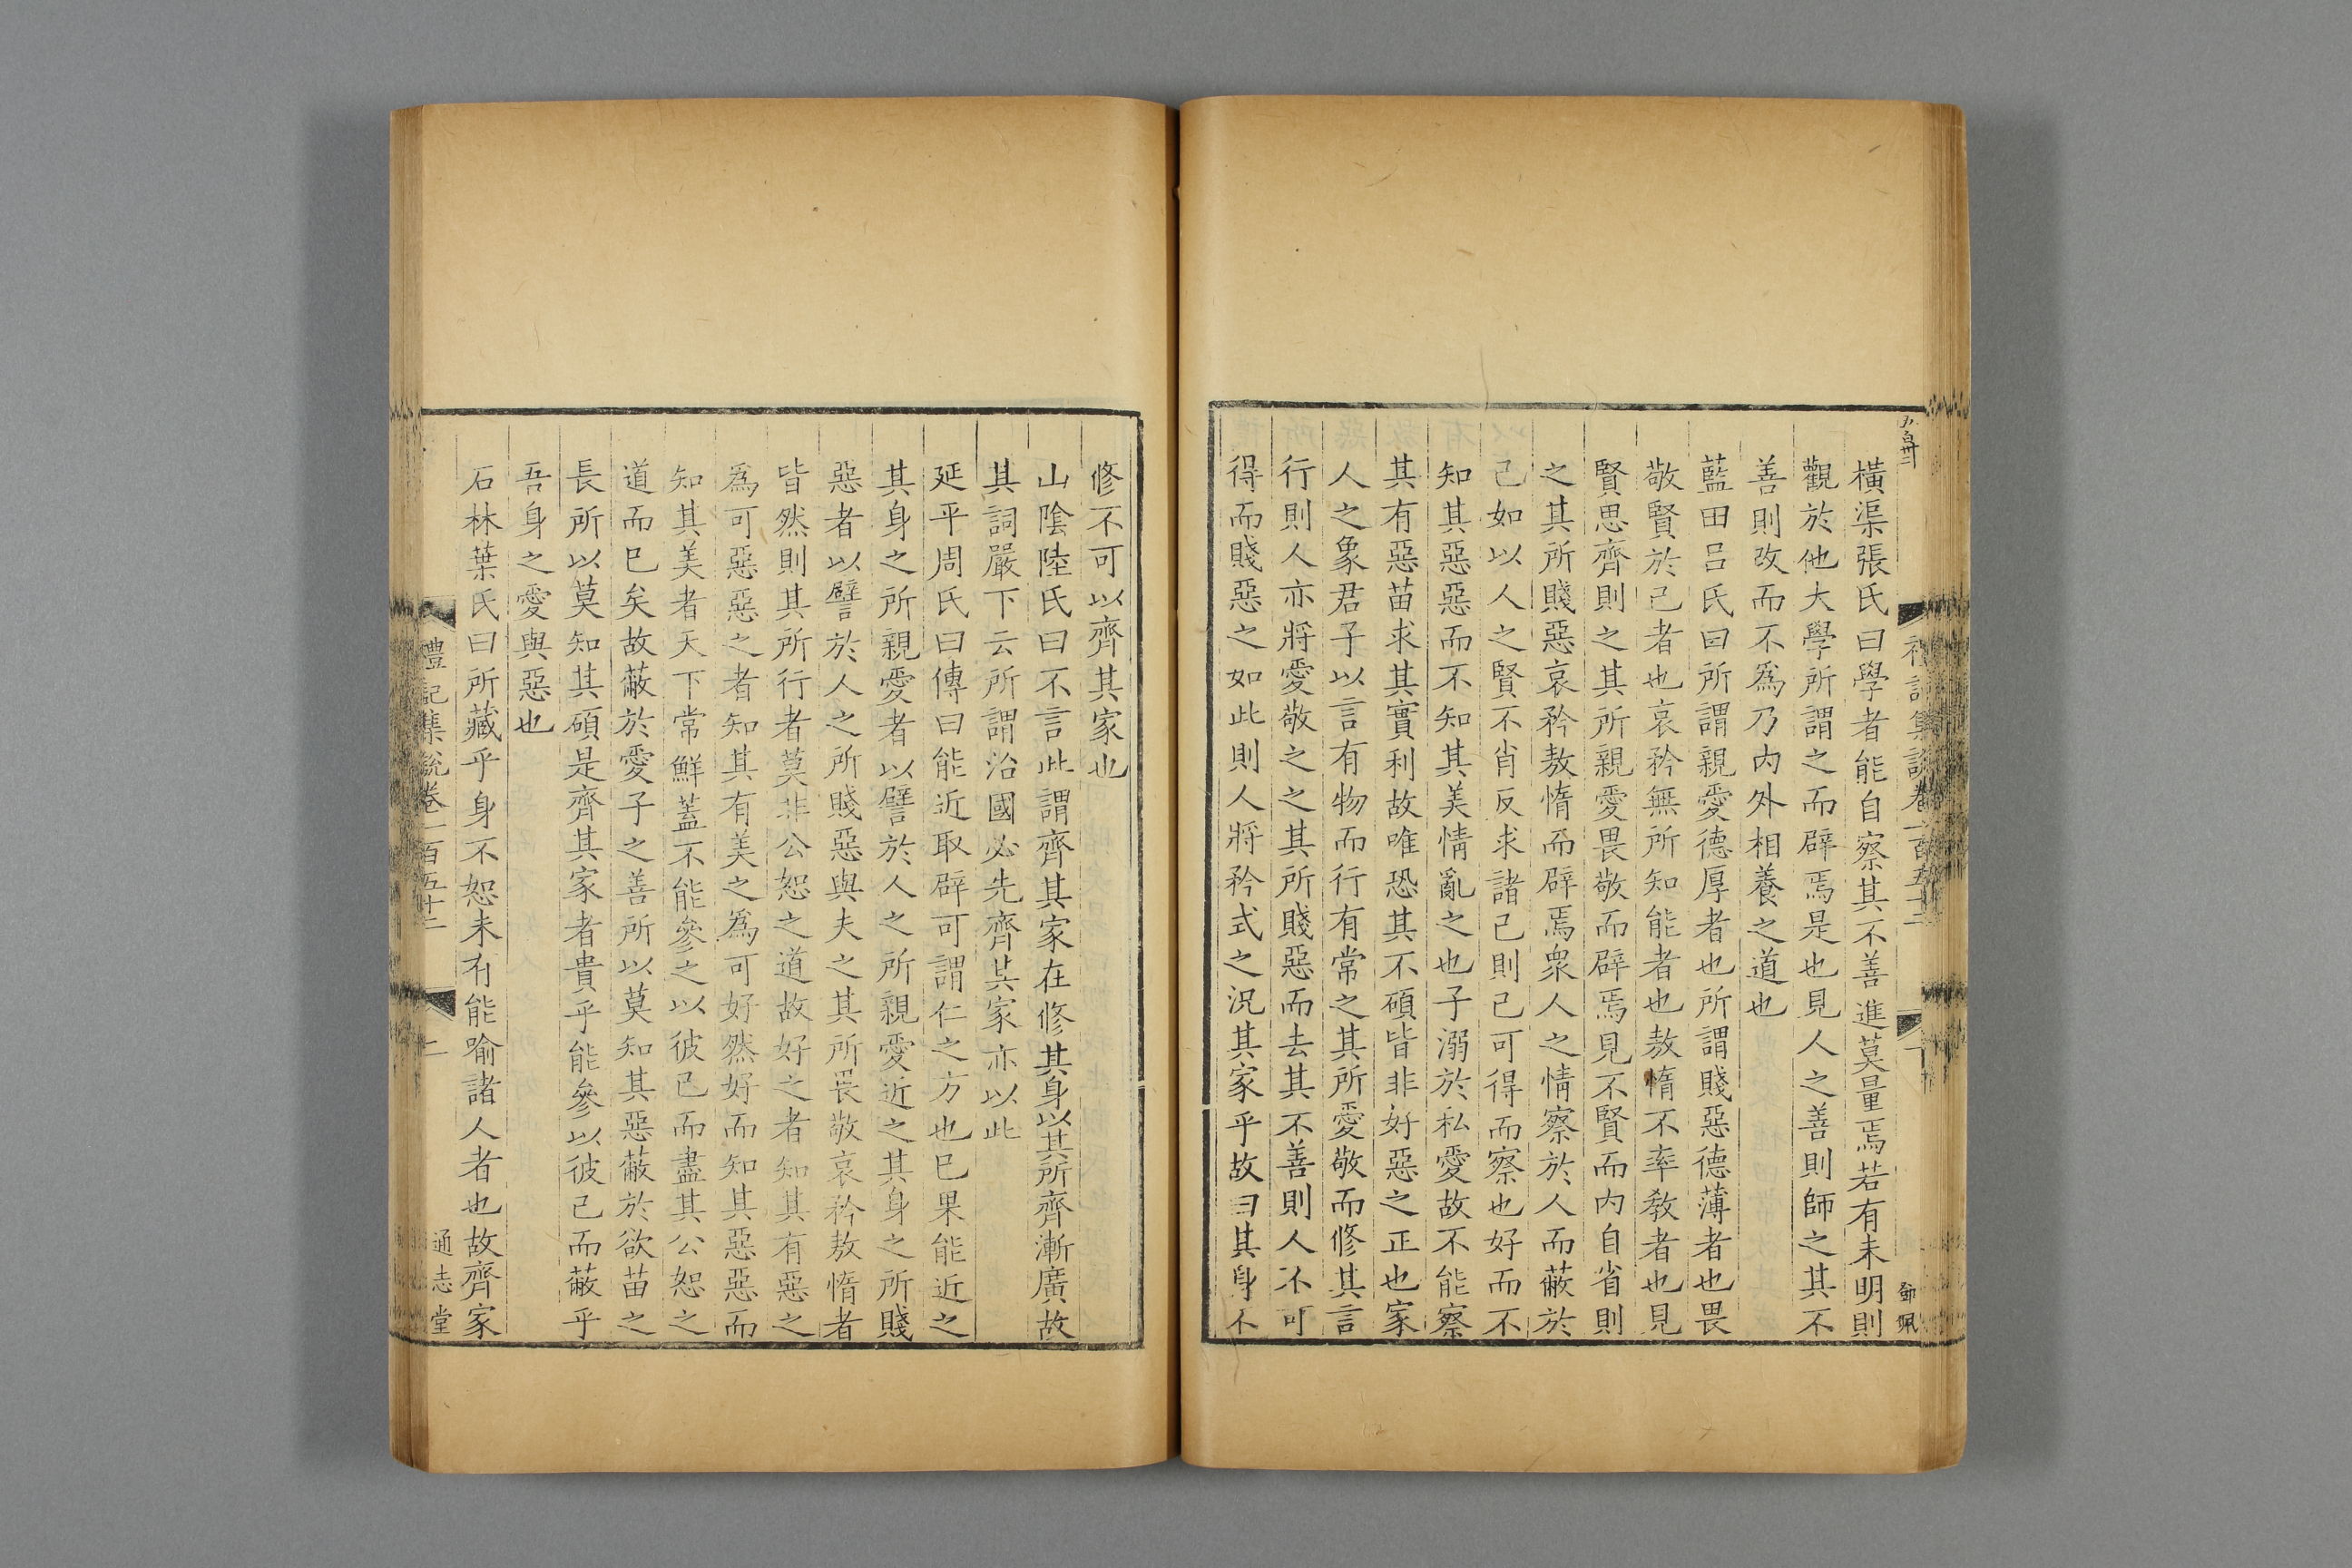 橫渠張氏曰學者能自察其不善進莫量焉若有未明則
觀於他大學所謂之而辟焉是也見人之善則師之其不
善則改而不爲乃内外相養之道也
藍田吕氏曰所謂親愛德厚者也所謂賤惡德薄者也畏
敬賢於己者也哀矜無所知能者也敖惰不率敎者也見
賢思齊則之其所親愛畏敬而辟焉見不賢而内自省則
之其所賤惡哀矜敖惰而辟焉衆人之情察於人而蔽於
己如以人之賢不肖反求諸己則己可得而察也好而不
知其惡惡而不知其美情亂之也子溺於私愛故不能察
其有惡苗求其實利故唯恐其不碩皆非好惡之正也家
人之象君子以言有物而行有常之其所愛敬而修其言
行則人亦將愛敬之之其所賤惡而去其不善則人不可
得而賤惡之如此則人將矜式之況其家乎故曰其身不
修不可以齊其家也
山陰陸氏曰不言此謂齊其家在修其身以其所齊漸廣故
其詞嚴下云所謂治國必先齊其家亦以此
延平周氏曰傳曰能近取辟可謂仁之方也已果能近之
其身之所親愛者以譬於人之所親愛近之其身之所賤
惡者以譬於人之所賤惡與夫之其所畏敬哀矜敖惰者
皆然則其所行者莫非公恕之道故好之者知其有惡之
爲可惡惡之者知其有美之爲可好然好而知其惡惡而
知其美者天下常鮮蓋不能參之以彼己而盡其公恕之
道而已矣故蔽於愛子之善所以莫知其惡蔽於欲苗之
長所以莫知其碩是齊其家者貴乎能參以彼己而蔽乎
吾身之愛與惡也
石林葉氏曰所藏乎身不恕未有能喻諸人者也故齊家
禮記集說卷一百五十二
二
通志堂